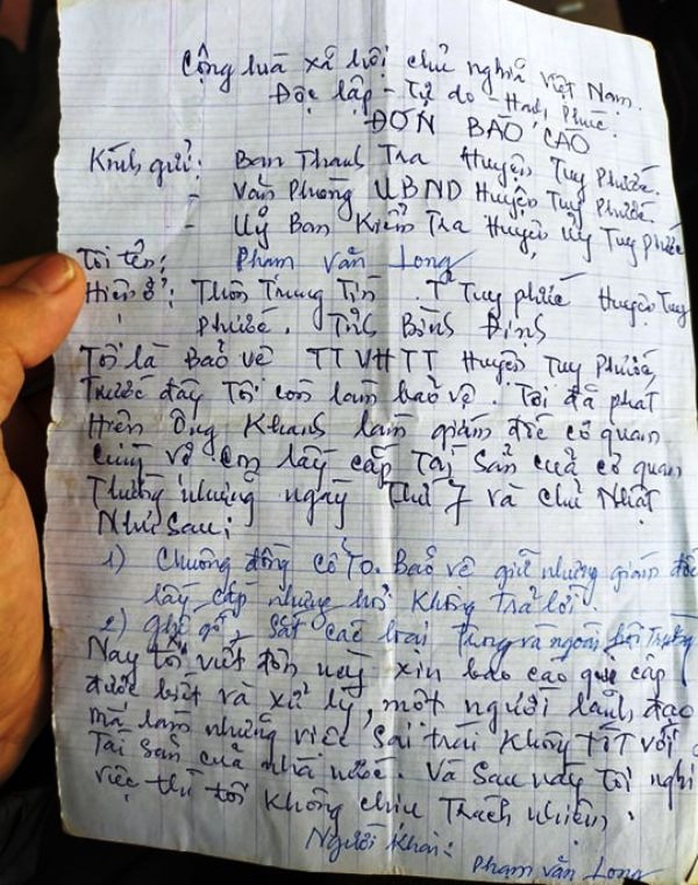 Cộng hoà xã hội chủ nghĩa Việt Nam.
Độc lập - Tự do - Hạnh Phúc.
ĐƠN BÁO CÁO
Kính gửi: Ban Thanh Tra Huyện Tuy Phước.
- Văn Phòng UBND Huyện Tuy Phước.
- Uỷ Ban Kiểm Tra Huyện uỷ Tuy Phước
Tôi tên: Phạm Văn Long
Hiện ở: Thôn Trung Tín . T² Tuy phước Huyện Tuy
Phước. Tỉnh Bình Định
Tôi là Bảo vệ TTVHTT Huyện Tuy Phước,
Trước đây Tôi còn làm bảo vệ. Tôi đã phát
Hiện Ông Khanh làm giám đốc cơ quan
cùng vợ con lấy cắp Tài Sản của cơ quan
Thường những ngày Thứ 7 và chủ Nhật
Như Sau:
1) Chuông đồng cổ To. Bảo vệ giữ nhưng giám đốc
lấy cắp nhưng hỏi không trả lời.
2) Ghế gỗ, Sắt các loại Trong và ngoài hội Trường
Nay tôi viết đơn này xin báo cáo quý cấp
được biết và xử lý, một người lãnh đạo
mà làm những việc sai trái không TỐT với
Tài Sản của nhà nước. Và Sau này Tôi nghỉ
việc thì tôi không chịu Trách nhiệm.
Người Khai:
Phạm Văn Long